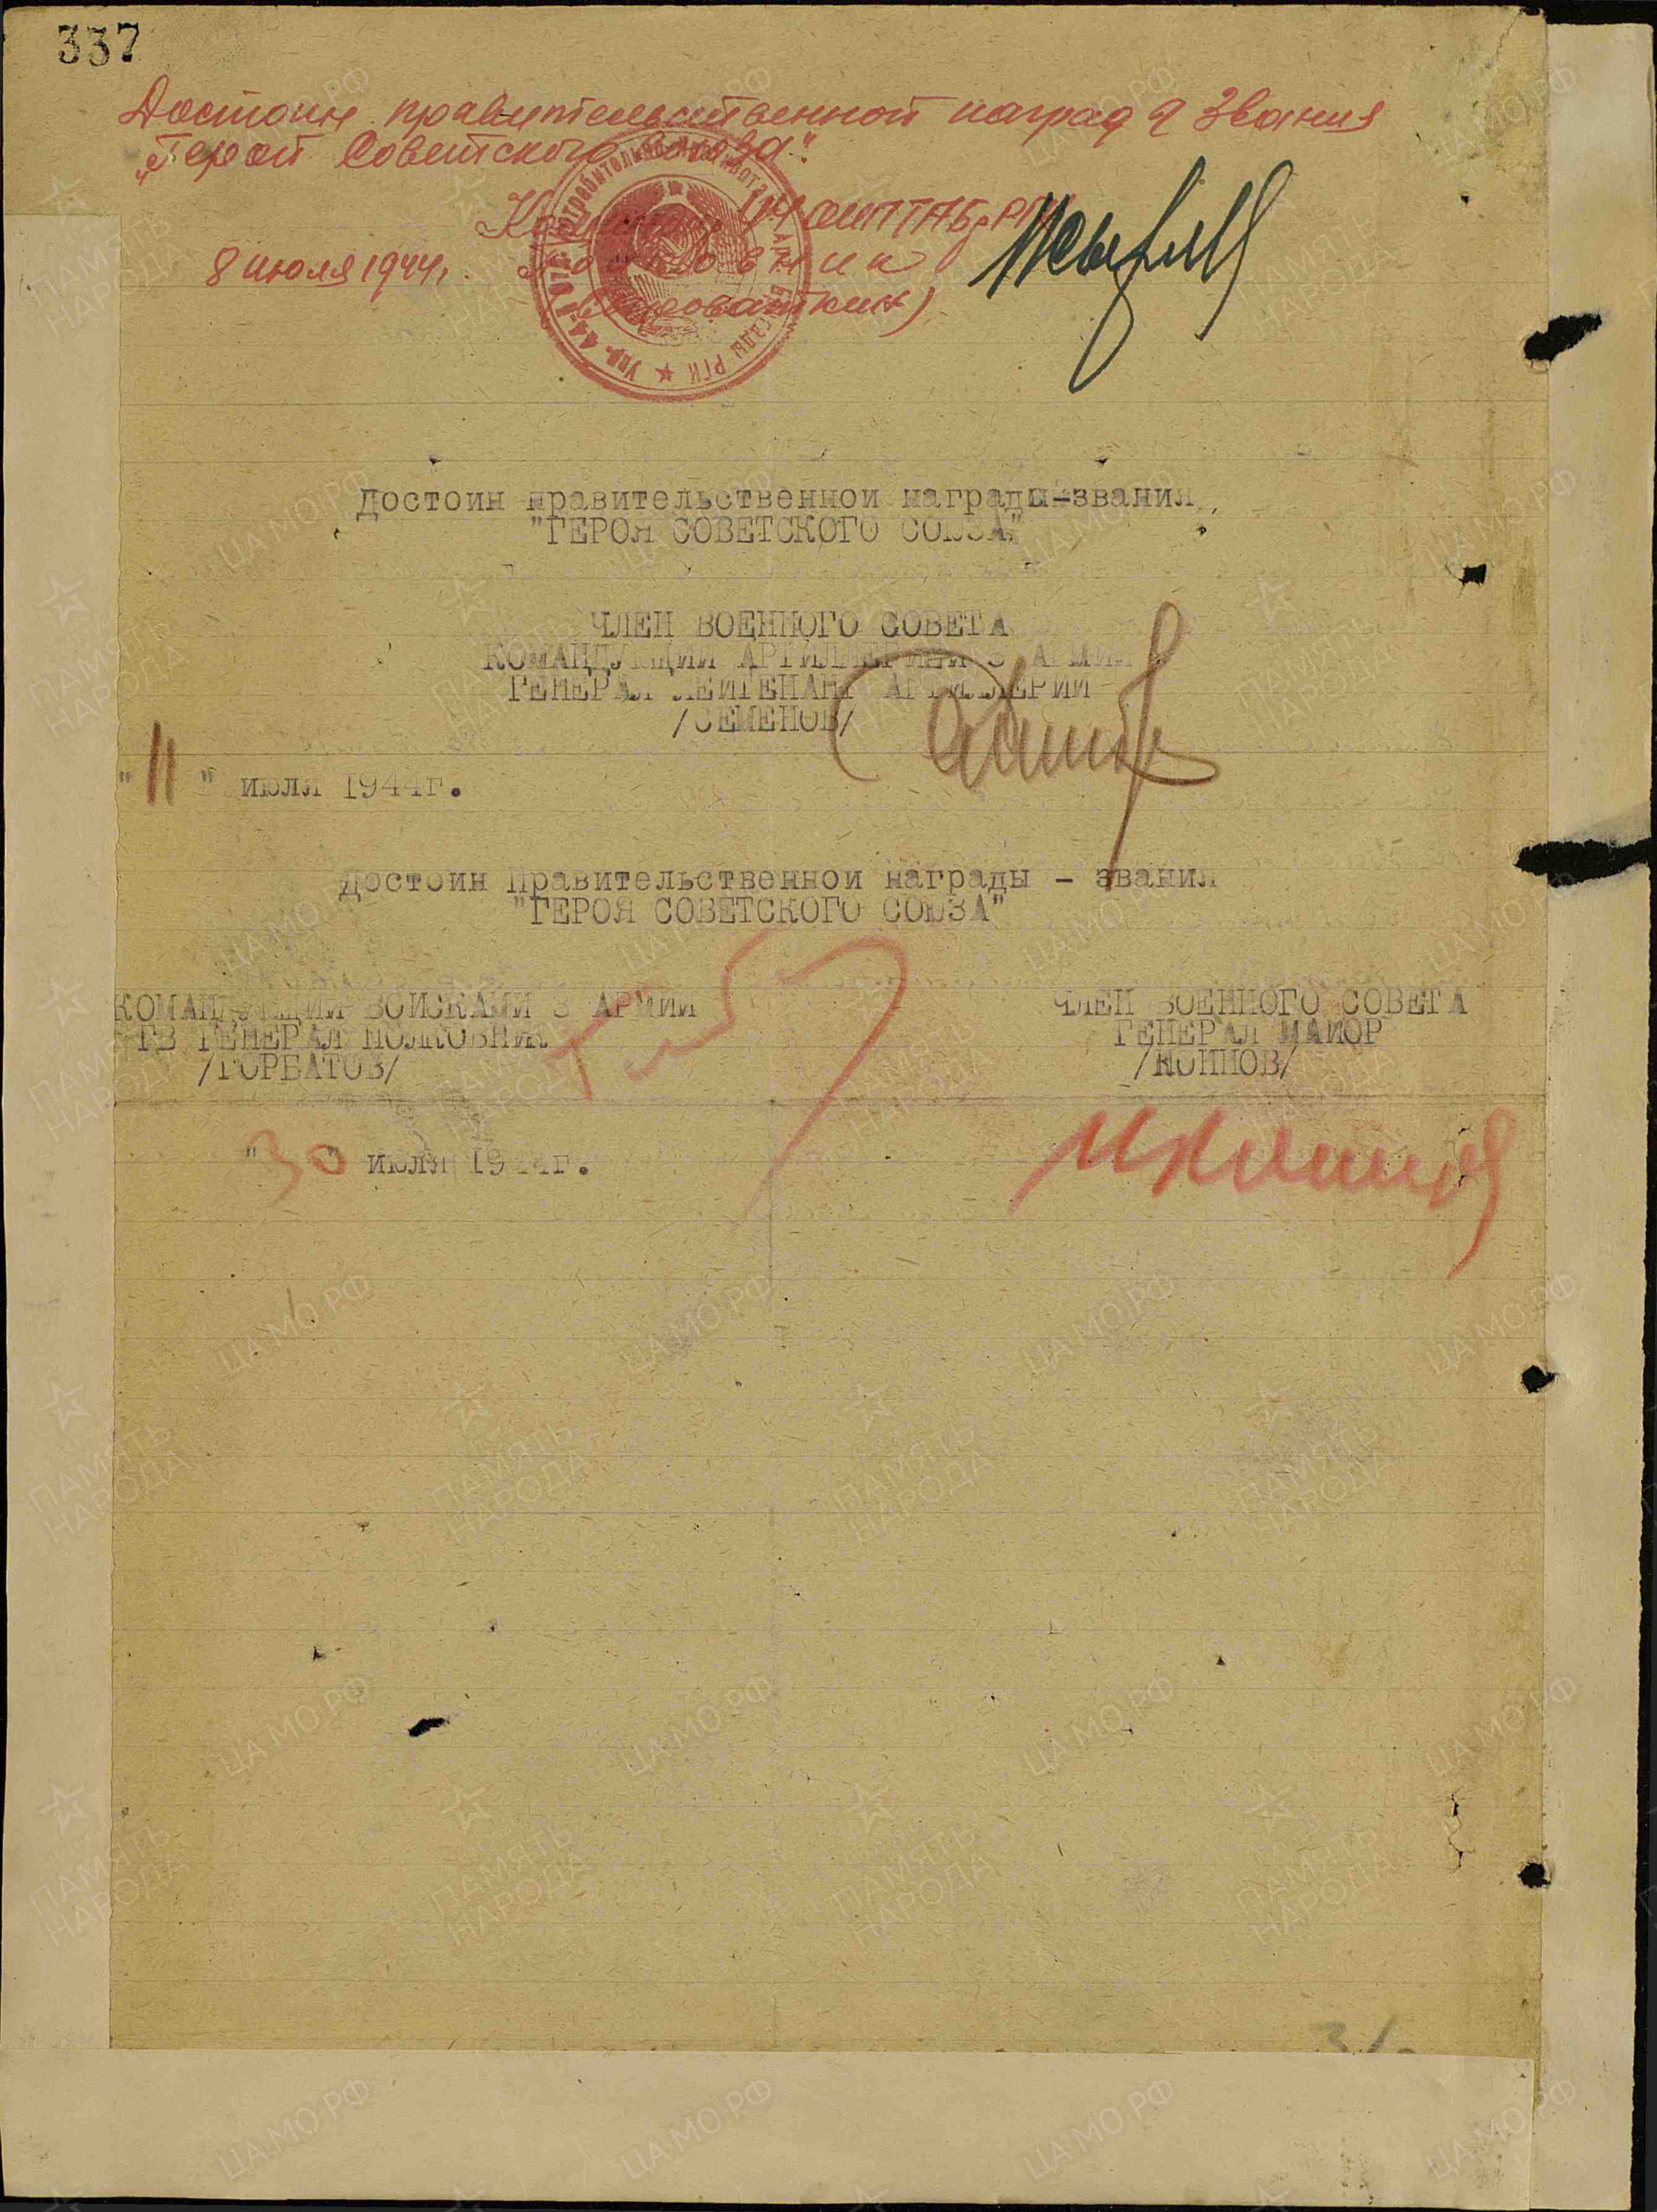 337
Достоин правительственной наград а звания
„Герой Советского Союза".
Командир 44 ОИПТАБр РГК
8 июля 1944г.
Полковник
Достоин правительственной награды-звания
"ГЕРОЯ СОВЕТСКОГО СОЮЗА"
ЧЛЕН ВОЕННОГО СОВЕТА
КОМАНДУЮЩИЙ АРТИЛЛЕРИЕЙ 3 АРМИИ
ГЕНЕРАЛ ЛЕЙТЕНАНТ АРТИЛЛЕРИИ
/СЕМЕНОВ/
"11" июля 1944г.
Достоин Правительственной награды - звания
"ГЕРОЯ СОВЕТСКОГО СОЮЗА"
КОМАНДУЮЩИЙ ВОЙСКАМИ 3 АРМИИ
ГВ ГЕНЕРАЛ ПОЛКОВНИК
/ГОРБАТОВ/
ЧЛЕН ВОЕННОГО СОВЕТА
ГЕНЕРАЛ МАЙОР
/КОННОВ/
"30" июля 1944г.